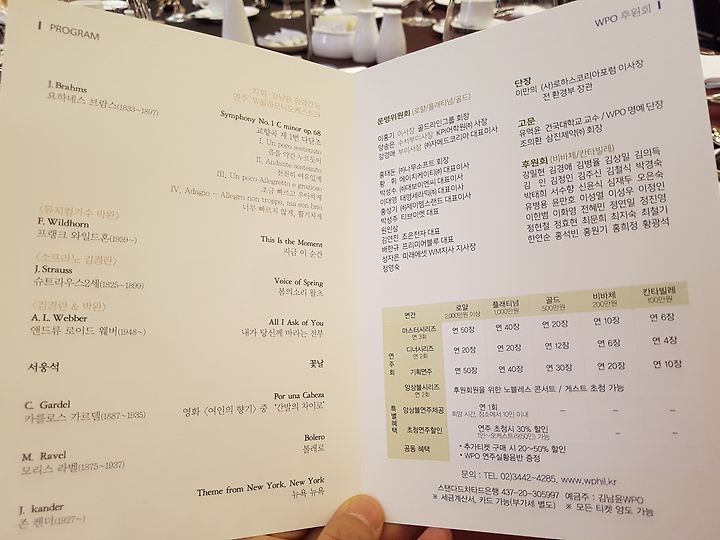 PROGRAM
J. Brahms
요하네스 브람스(1833~1897)
지휘 김남윤 음악감독
연주 W필하모닉오케스트라
Symphony No. 1 C minor op. 68
교향곡 제 1번 다단조
I. Un poco sostenuto
음을 약간 누르듯이
II. Andante sostenuto
천천히 여유있게
III. Un poco Allegretto e grazioso
조금 빠르고 우아하게
IV. Adagio - Allegro non troppo, ma con brio
너무 빠르지 않게, 활기차게
<뮤지컬가수 박완>
F. Wildhorn
프랭크 와일드혼(1959~)
This Is the Moment
지금 이 순간
<소프라노 김경란>
J. Strauss
슈트라우스2세(1825~1899)
Voice of Spring
봄의소리 왈츠
<김경란 & 박완>
A. L. Webber
앤드류 로이드 웨버(1948~)
All I Ask of You
내가 당신께 바라는 전부
서웅석
꽃날
C. Gardel
카를로스 가르델(1887~1935)
Por una Cabeza
영화 <여인의 향기> 중 "간발의 차이로"
M. Ravel
모리스 라벨(1875~1937)
Bolero
볼레로
J. kander
존 켄더(1927~)
Theme from New York, New York
뉴욕 뉴욕
WPO 후원회
운영위원회 (로얄/플래티넘/골드)
이홍기 이사장 골드라인그룹 회장
양승은 수석부이사장 KPI어학원㈜ 사장
김경애 부이사장 ㈜자메드코리아 대표이사
홍대돈 ㈜나무소프트 회장
황 휘 에이치케이티㈜ 대표이사
박성수 ㈜대보이엔씨 대표이사
이대영 태명세라믹㈜ 대표이사
홍성기 ㈜제이엠스랜드 대표이사
박성주 티브이엣 대표
원인상
김연진 조은전자 대표
배한규 프리미어블루 대표
성자은 미래에셋 WM지사 지사장
정영숙
단장
이만의 (사)로하스코리아포럼 이사장
전 환경부 장관
고문
유억윤 건국대학교 교수 / WPO 명예 단장
조의환 삼진제약㈜ 회장
후원회 (비바체/칸타빌레)
강일현 김경애 김병율 김상일 김의득
김 인 김정인 김주신 김철식 박경숙
박태희 서수향 신윤식 심재두 오은숙
유병용 윤만호 이성열 이성우 이정인
이한범 이화영 전혜민 정연일 정진영
정현철 정효현 최문희 최지숙 최철기
한연순 홍석빈 홍원기 홍희정 황광석
연간 로얄 플래티넘 골드 비바체 칸타빌레
2,000만원 이상 1,000만원 500만원 200만원 100만원
연주회
마스터시리즈 연 3회 연 50장 연 40장 연 20장 연 10장 연 6장
디너시리즈 연 2회 연 20장 연 20장 연 12장 연 6장 연 4장
기획연주 연 50장 연 40장 연 30장 연 20장 연 10장
특별혜택
앙상블시리즈 연 2회 후원회원을 위한 노블레스 콘서트 / 게스트 초청 가능
앙상블연주제공 연 1회 – – –
희망 시간, 장소에서 10인 이내
초청연주할인 연주 초청시 30% 할인 – – –
1인~오케스트라(50인) 가능
공동 혜택 • 추가티켓 구매 시 20~50% 할인
• WPO 연주실황음반 증정
문의 : TEL 02)3442-4285, www.wphil.kr
스탠다드차타드은행 437-20-305997 예금주 : 김남윤WPO
※ 세금계산서, 카드 가능(부가세 별도) ※ 모든 티켓 양도 가능